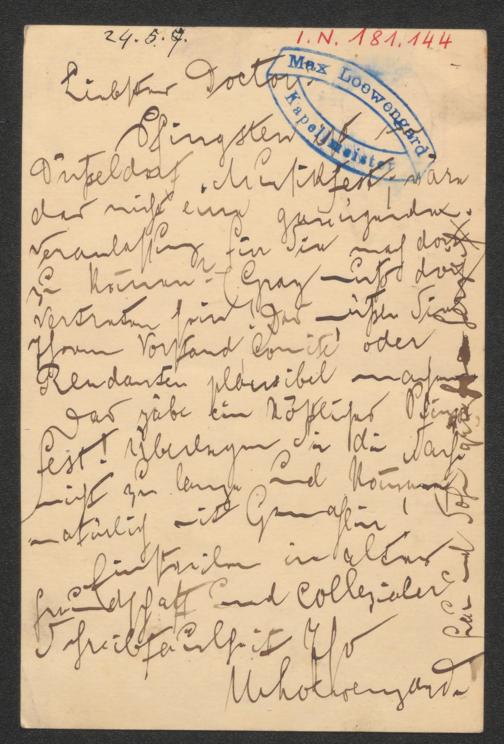 24.5.9.
I.N. 181.144
Max Loewengard
Kapellmeister
Liebster Doctor!
Pfingsten ist in
Düsseldorf Musikfest. wäre
das nicht eine genügende
Veranlassung für Sie nach dort
zu kommen? (Graz muß dort
vertreten sein! Das müßen Sie
Ihrem Vorstand Comité oder
Rendanten plausibel machen
Das gäbe ein köstliches Pfingst
fest! Überlegen Sie die Sache
nicht zu lange und kommen
natürlich mit Gemahlin!
Einstweilen in alter
Freundschaft und collegialer
Schreibfaulheit Ihr
MLoewengard